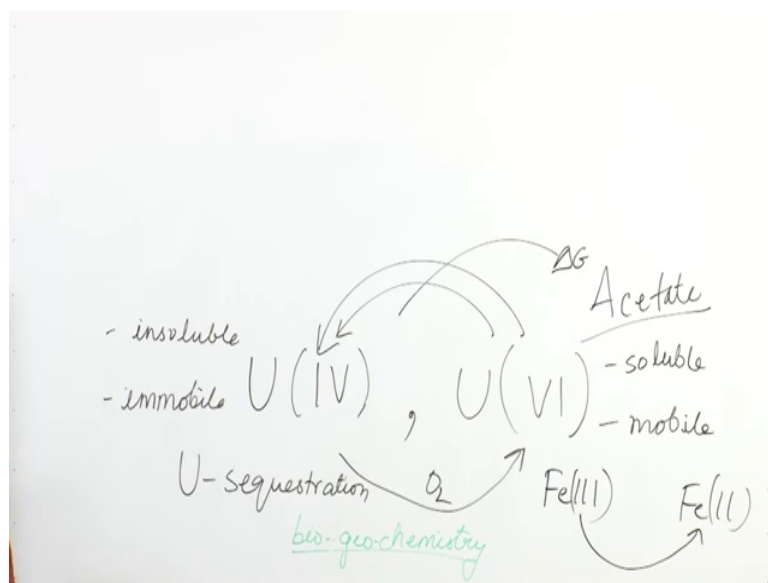 ΔG
Acetate
- insoluble
- immobile
U(IV) , U(VI)
- soluble
- mobile
U-sequestration
O2
Fe(III)
Fe(II)
bio-geo-chemistry